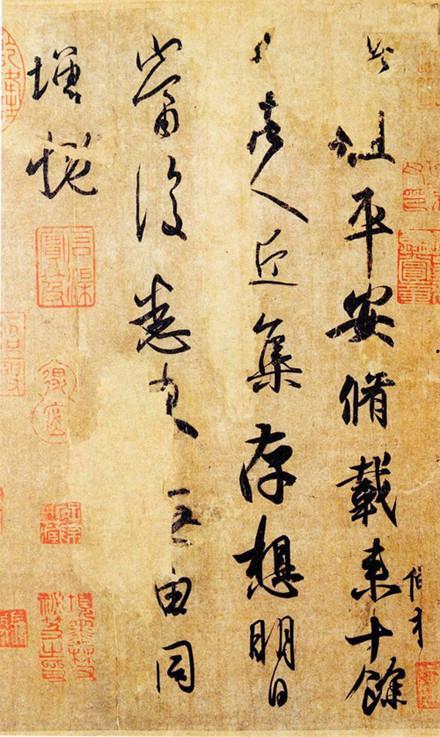 此粗平安脩載來十餘
日諸人近集存想明日
當復悉來无由同
增慨